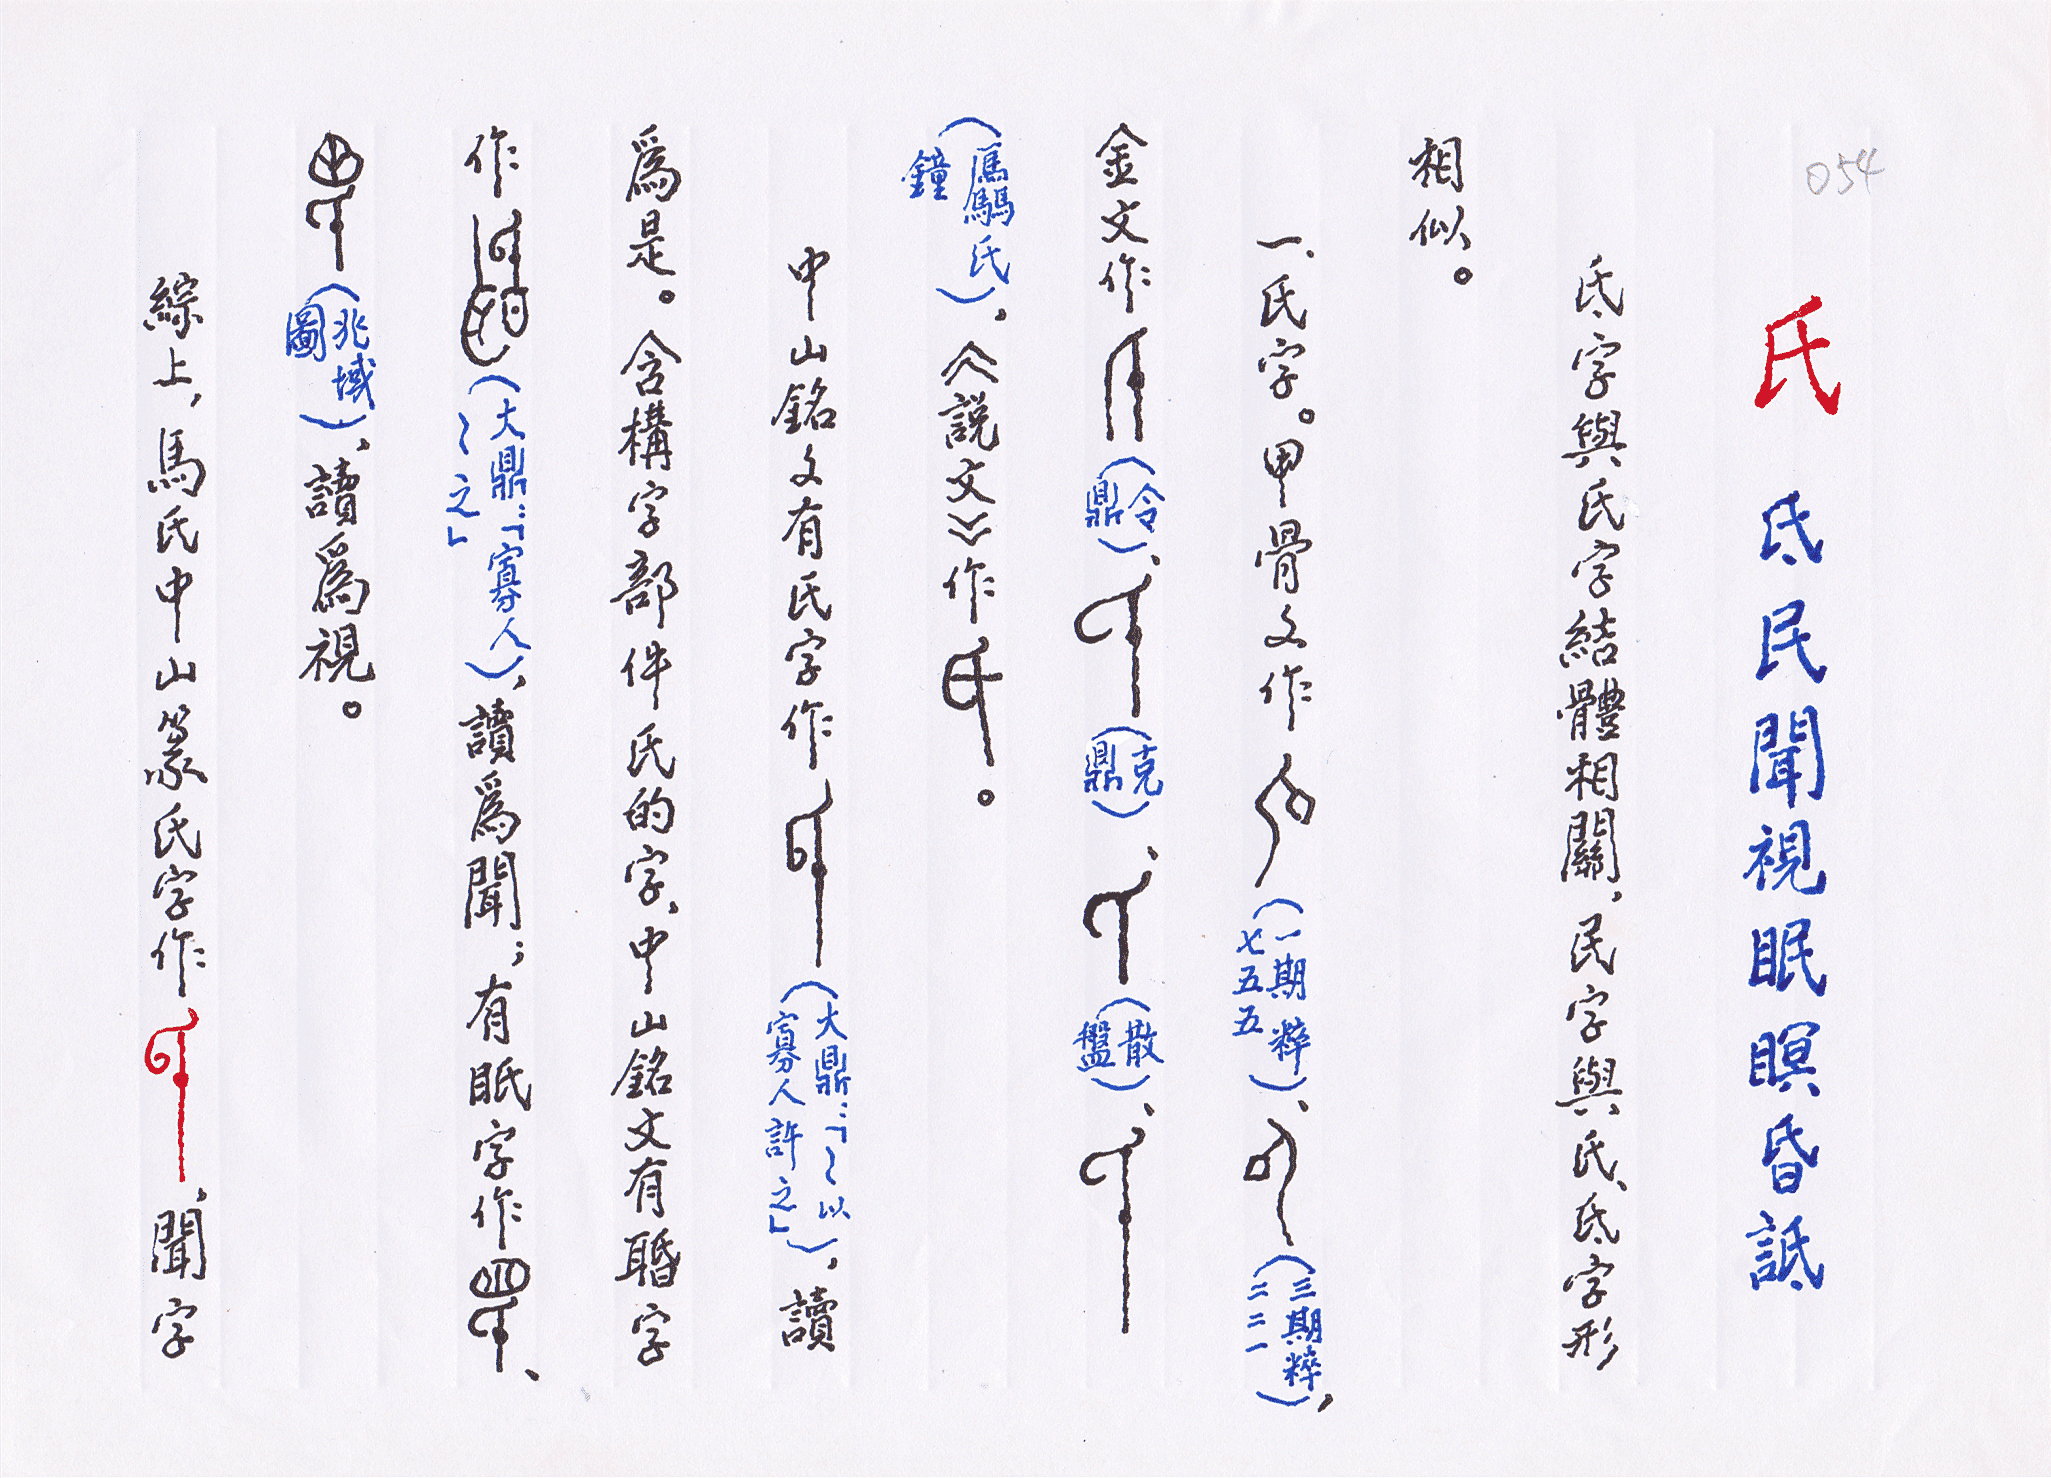 054
氏 氐民聞視眠瞑昏詆
氐字與氏字結體相關，民字與氏、氐字形
相似。
一、氏字。甲骨文作（一期粹七五五）、（三期粹二二一），
金文作（令鼎）、（克鼎）、（散盤）、
（鷹氏鐘），《説文》作。
中山銘文有氏字作（大鼎：「～以寡人許之」），讀
爲是。含構字部件氏的字，中山銘文有聒字
作（大鼎：「寡人～之」），讀爲聞；有眂字作、
（兆域圖），讀爲視。
綜上，馬氏中山篆氏字作，聞字